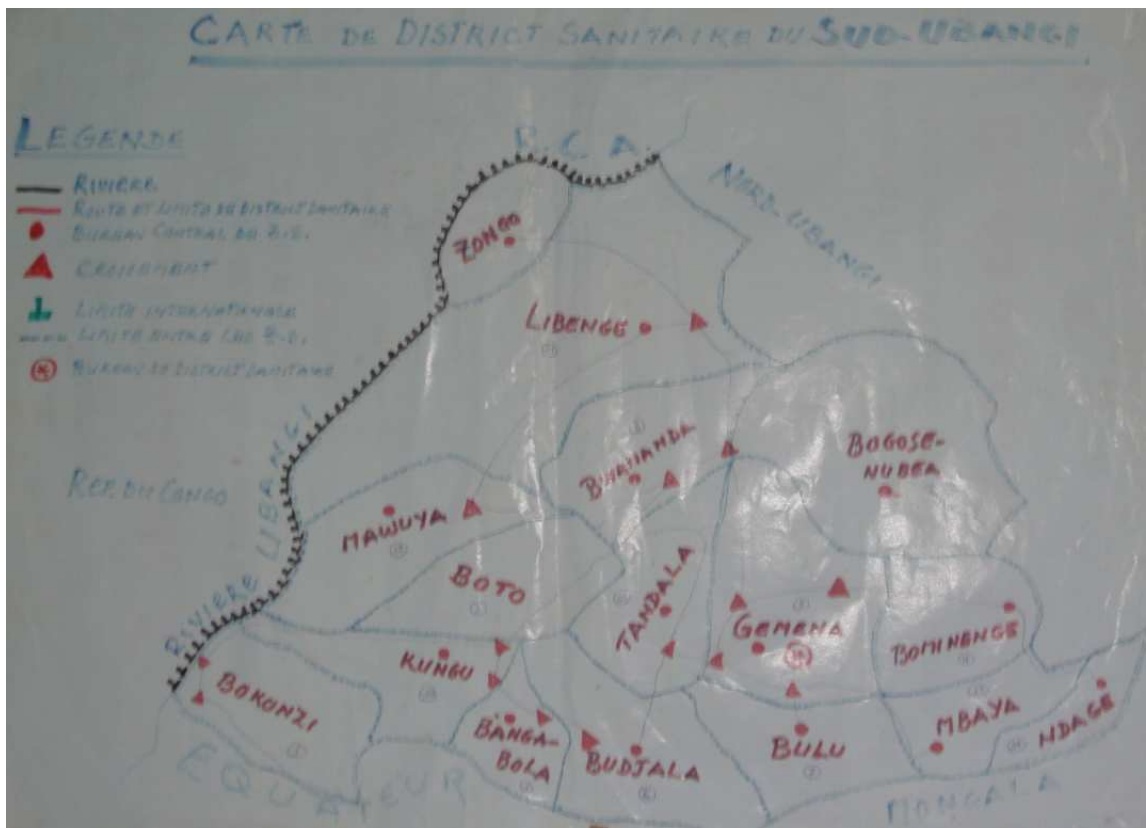 CARTE DE DISTRICT SANITAIRE DU SUD-UBANGI
LEGENDE
RIVIERE
ROUTE ET LIMITE DE DISTRICT SANITAIRE
BUREAU CENTRAL DU Z.S.
CROISEMENT
LIMITE INTERNATIONALE
LIMITE ENTRE LES Z.S.
BUREAU DE DISTRICT SANITAIRE
R.C.A.
NORD-UBANGI
ZONGO
LIBENGE
BWAMANDA
BOGOSE-
NUBEA
REP. DU CONGO
RIVIERE UBANGI
MAWUYA
BOTO
TANDALA
GEMENA
BOMINENGE
KUNGU
BOKONZI
BANGA-
BOLA
BUDJALA
BULU
MBAYA
NDAGE
EQUATEUR
MONGALA